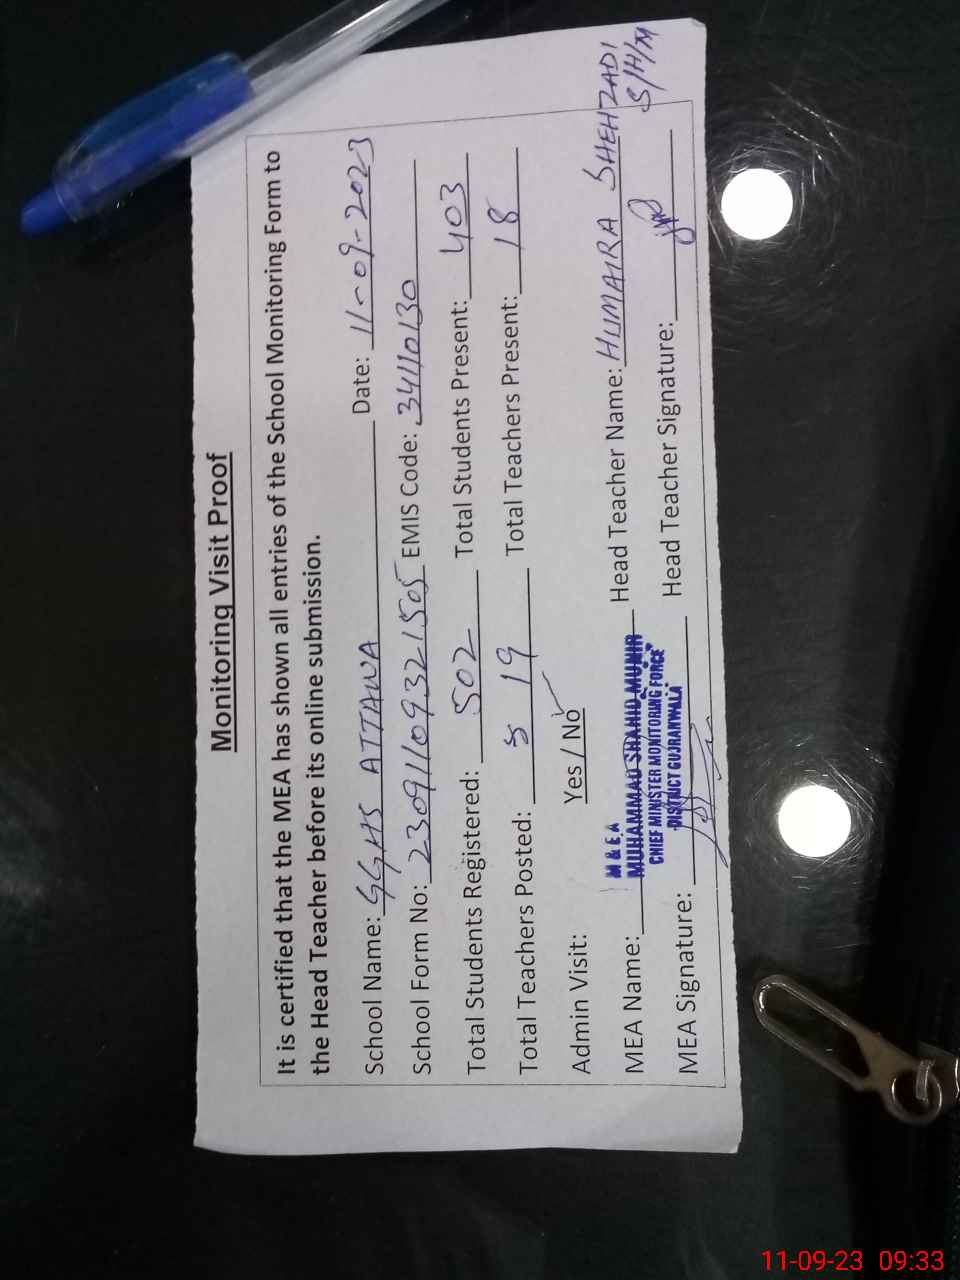 Monitoring Visit Proof
It is certified that the MEA has shown all entries of the School Monitoring Form to
the Head Teacher before its online submission.
School Name: GGHS ATTAWA Date: 11-09-2023
School Form No: 230911093321505 EMIS Code: 34110130
Total Students Registered: 502 Total Students Present: 403
Total Teachers Posted: 19 Total Teachers Present: 18
Admin Visit: Yes / No
M & E A
MEA Name: MUHAMMAD SHAHID MUNIR Head Teacher Name: HUMAIRA SHEHZADI
CHIEF MINISTER MONITORING FORCE
S/H/M
DISTRICT GUJRANWALA
MEA Signature: Head Teacher Signature:
11-09-23 09:33